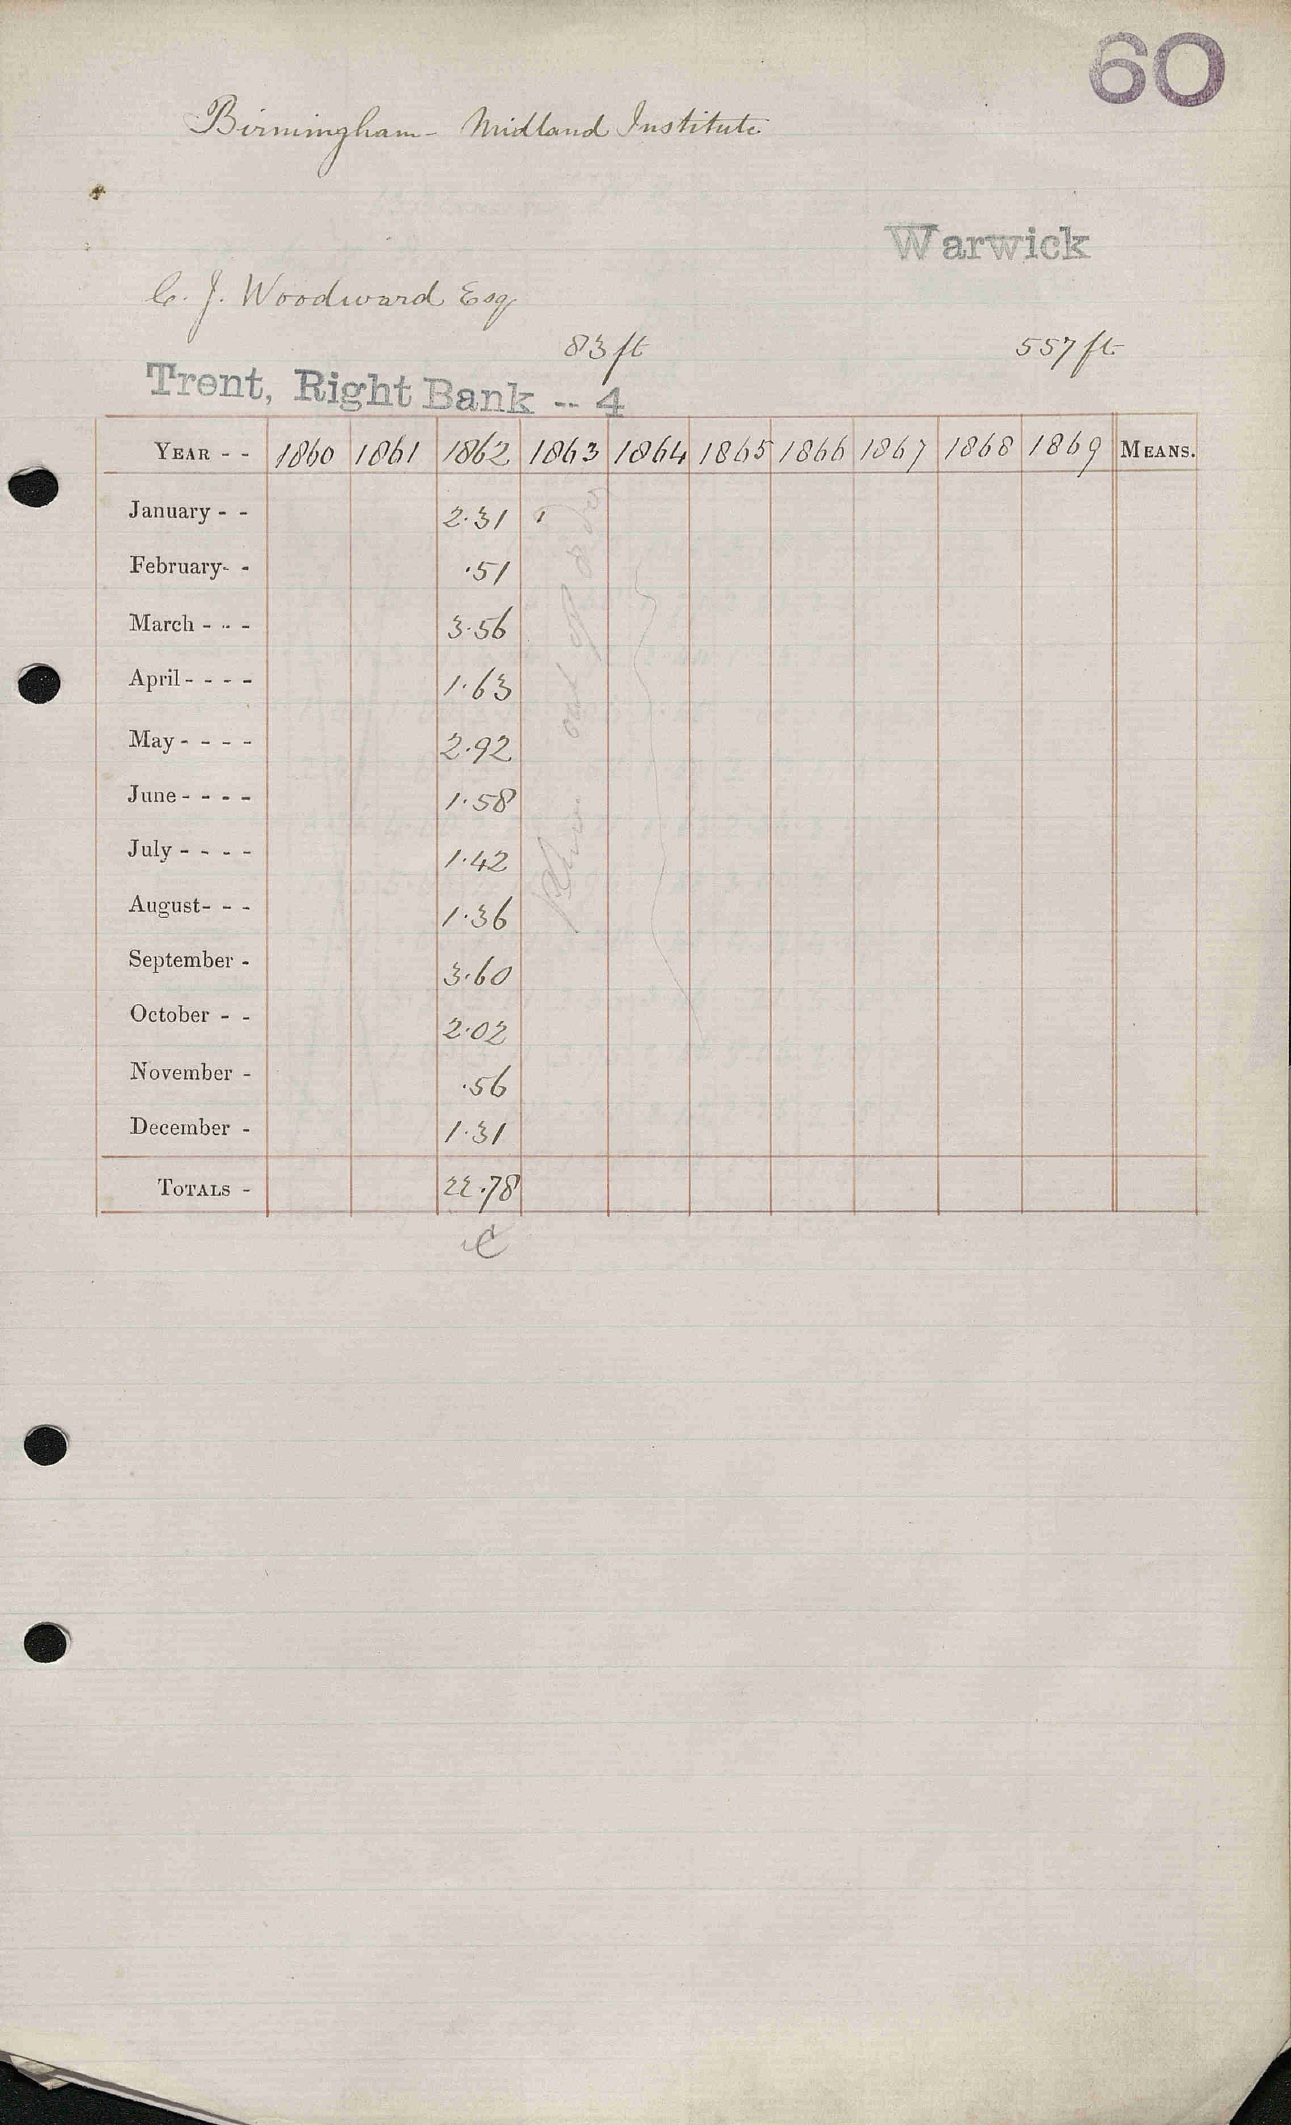 60
Birmingham - Midland Institute
Warwick
C. J. Woodward Esq
83 ft 557 ft.
Trent, Right Bank -- 4
YEAR - - 1860 1861 1862 1863 1864 1865 1866 1867 1868 1869 MEANS.
January - - 2.31
February - - .51
March - - - 3.56
April - - - - 1.63
May - - - - 2.92
June - - - - 1.58
July - - - - 1.42
August - - - 1.36
September - 3.60
October - - 2.02
November - .56
December - 1.31
TOTALS - 22.78
out of order